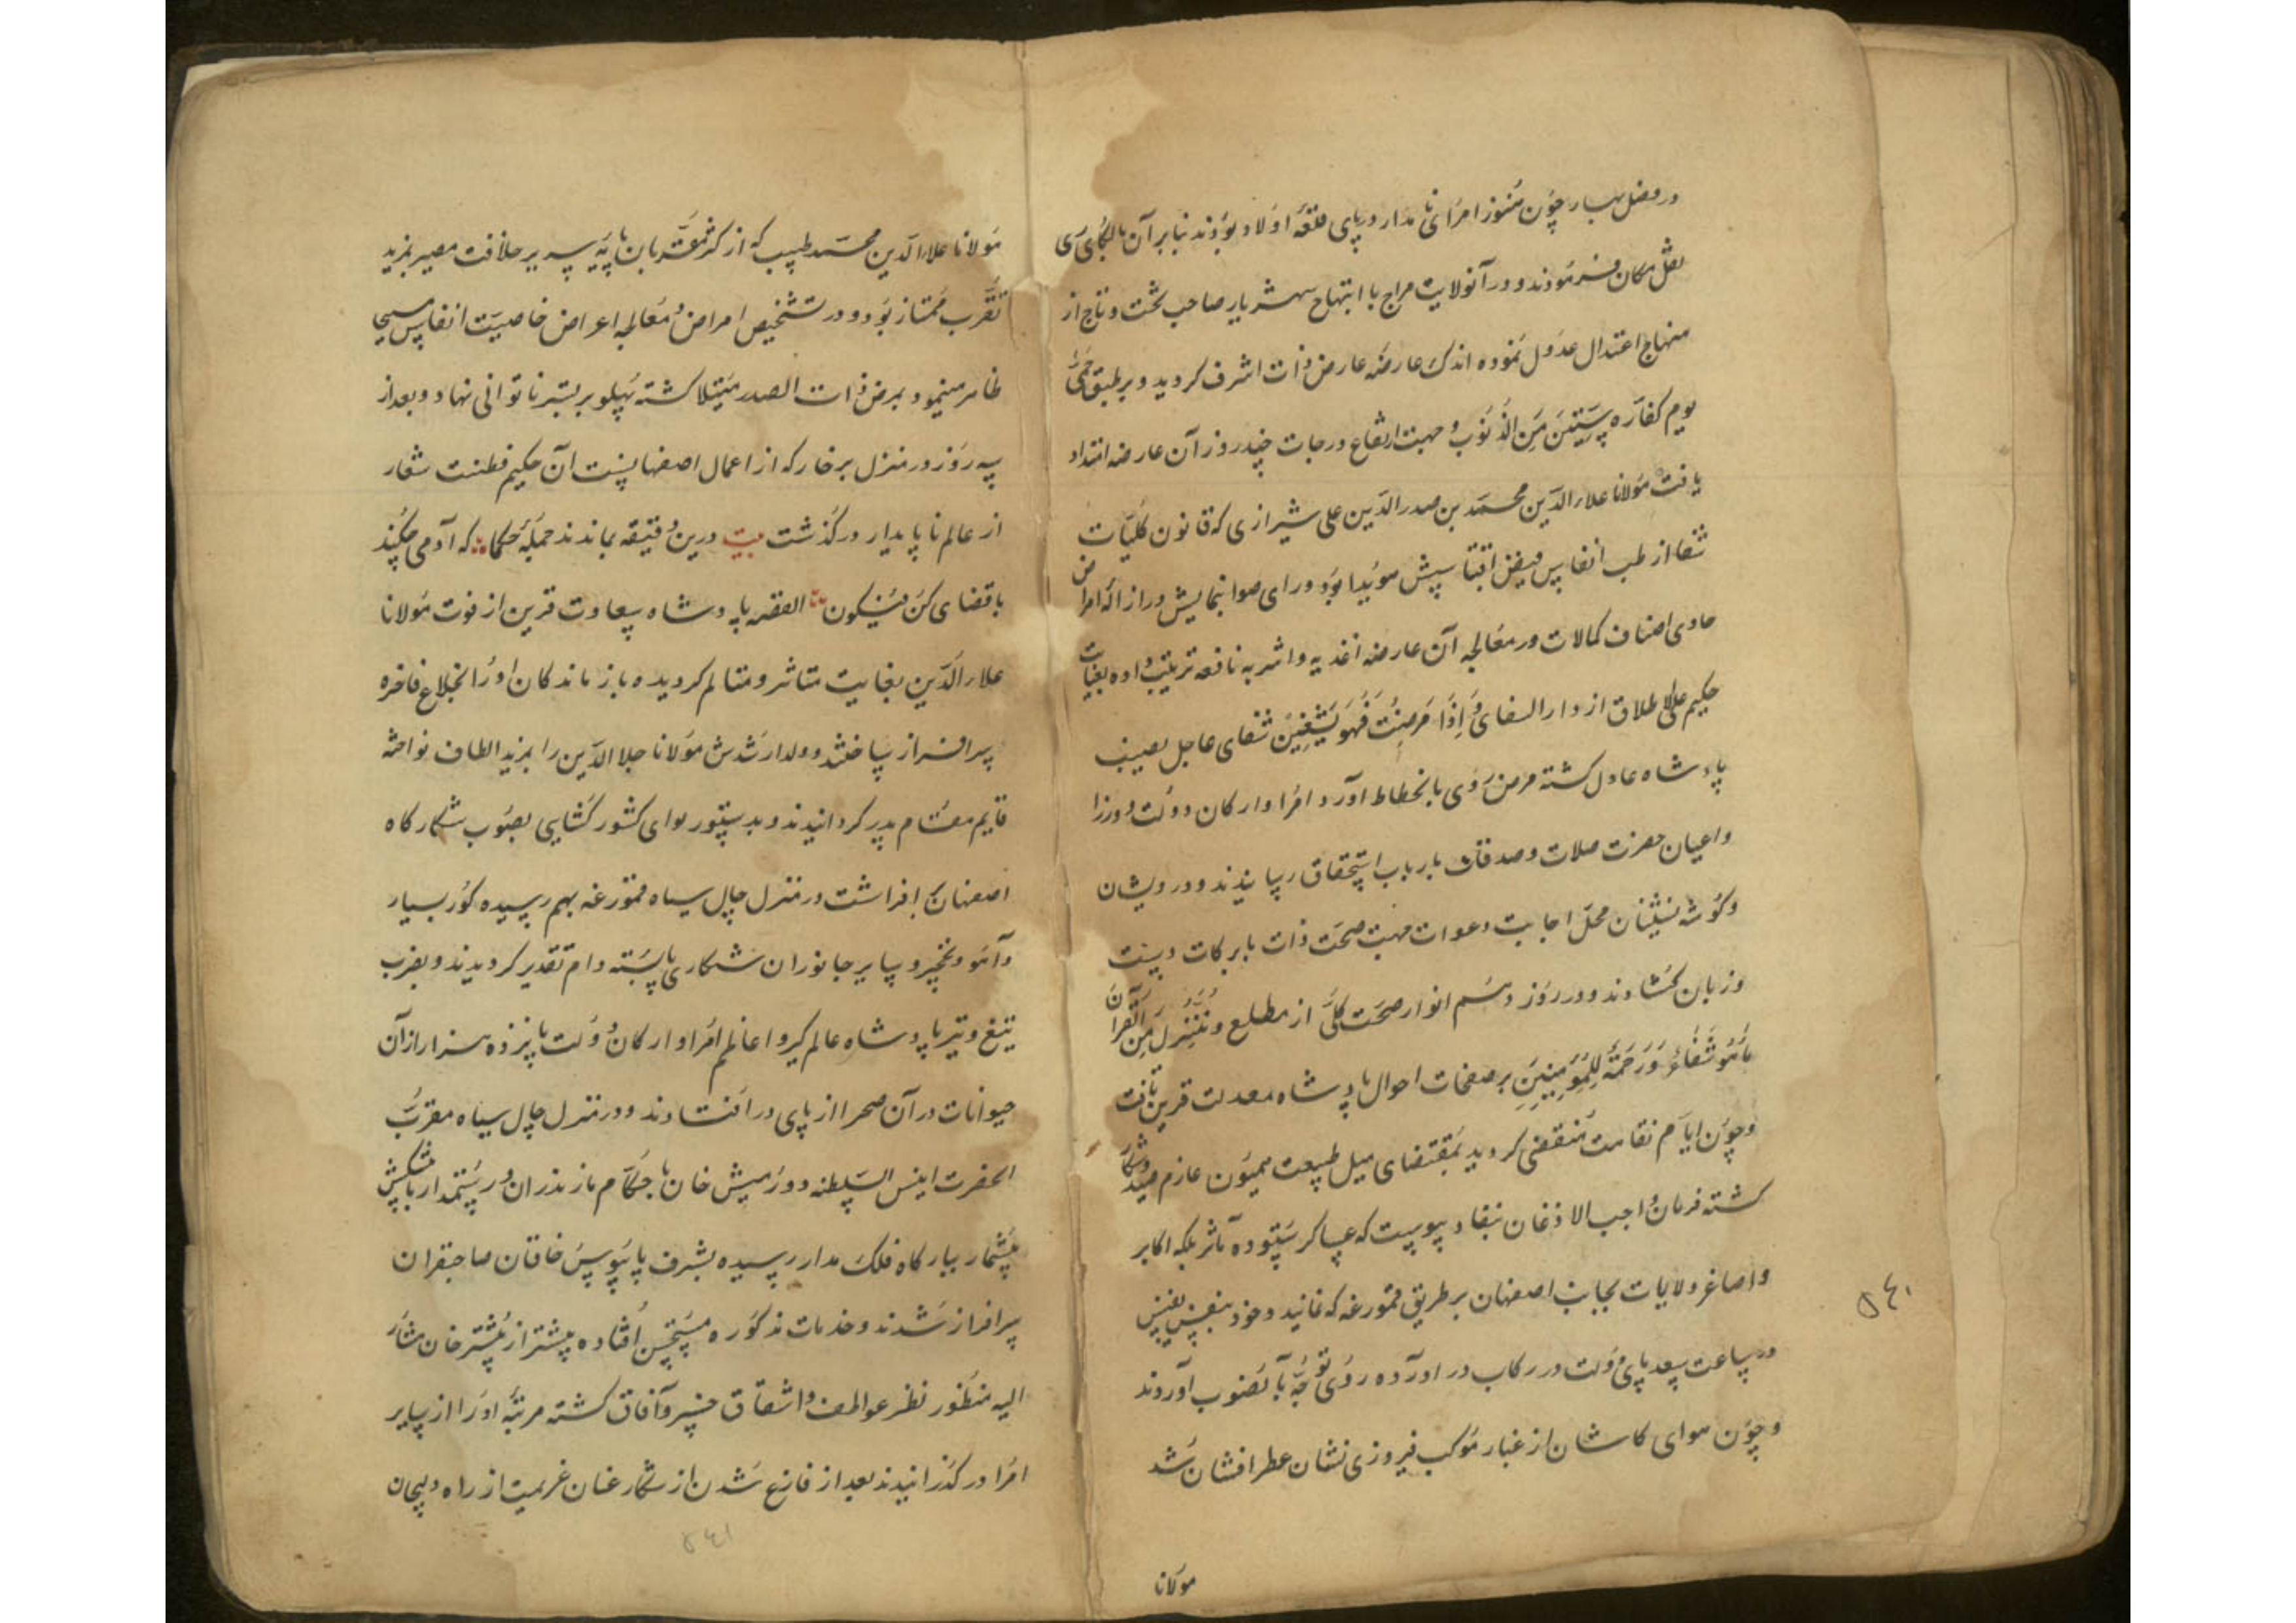 در فصل بهار چون هنوز امرای نامدار در پای قلعه اولاد بودند بنابر آن بالکای ری
نقل مکان فرمودند و در آنولایت مزاج با ابتهاج شهریار صاحب تخت و تاج از
منهاج اعتدال عدول نموده اندک عارضه عارض ذات اشرف کردید و بر طبق حمی
یوم کفاره سنتین من الذنوب و جهت ارتفاع درجات چند روز آن عارضه امتداد
یافت مولانا علاء الدین محمد بن صدر الدین علی شیرازی که قانون کلیات
شفا از طب انفاس فیض اقتباسش هویدا بود و رای صوابنمایش در ازاله امراض
حاوی اصناف کمالات در معالجه آن عارضه اغذیه و اشربه نافعه ترتیب داده بعنایت
حکیم علی الاطلاق از دار الشفای و اذا مرضت فهو یشفین شفای عاجل نصیب
پادشاه عادل کشته مرض روی بانحطاط آورد امرا و ارکان دولت و وزرا
و اعیان حضرت صلات و صدقات بارباب استحقاق رسانیدند و درویشان
و کوشه نشینان محل اجابت دعوات جهت صحت ذات بابرکات دست
و زبان کشادند و در روز دهم انوار صحت کلی از مطلع و ننزل من القرآن
ما هو شفاء و رحمة للمؤمنین بر صفحات احوال پادشاه معدلت قرین تافت
و چون ایام نقاهت منقضی کردید بمقتضای میل طبیعت همیون عازم صید و شکار
کشته فرمان واجب الاذعان بنفاد پیوست که عساکر ستوده مآثر بلکه اکابر
و اصاغر ولایات بجانب اصفهان بر طریق قمورغه که غانید و خود بنفس نفیس
در ساعت سعد پای دولت در رکاب در اورده روی توجه بآنصوب آوردند
و چون هوای کاشان از غبار موکب فیروزی نشان عطر افشان شد
مولانا
۵٤۱
مولانا علاء الدین محمد طبیب که از کثرت مقربان پایه سریر خلافت مصیر بمزید
تقرب ممتاز بود و در تشخیص امراض و معالجه اعراض خاصیت انفاس مسیحا
ظاهر مینمود بمرض ذات الصدر مبتلا کشته پهلو بر بستر ناتوانی نهاد و بعد از
سه روز در منزل برخار که از اعمال اصفهانست آن حکیم فطنت شعار
از عالم ناپایدار درکذشت بیت درین دقیقه بماندند جمله حکما که آدمی چکند
با قضای کن فیکون القصه پادشاه سعادت قرین از فوت مولانا
علاء الدین بغایت متاثر و متالم کردیده بازماندکان او را بخلاع فاخره
سرافراز ساختند و ولد ارشدش مولانا جلا الدین را بمزید الطاف نواخته
قایم مقام پدر کردانیدند و بدستور لوای کشور کشایی بصوب شکارکاه
اصفهان افراشت در منزل چال سیاه قمورغه بهم رسیده کور بسیار
و آهو و نخچیر و سایر جانوران شکاری پابسته دام تقدیر کردیدند و بضرب
تیغ و تیر پادشاه عالم کیر و اعاظم امرا و ارکان دولت پانزده هزار از آن
حیوانات در آن صحرا از پای در افتادند و در منزل چال سیاه مقرب
الحضرت انیس السلطنه دورمیش خان با حکام مازندران و رستمدار با پیشکش
بیشمار ببارکاه فلک مدار رسیده بشرف پایبوس خاقان صاحبقران
سرافراز شدند و خدمات مذکوره مستحسن افتاده بیشتر از پیشتر خان مشار
الیه منظور نظر عواطف و اشفاق خسرو آفاق کشته مرتبه او را از سایر
امرا در کذرانیدند بعد از فارغ شدن از شکار عنان عزیمت از راه دلیجان
۵٤۱